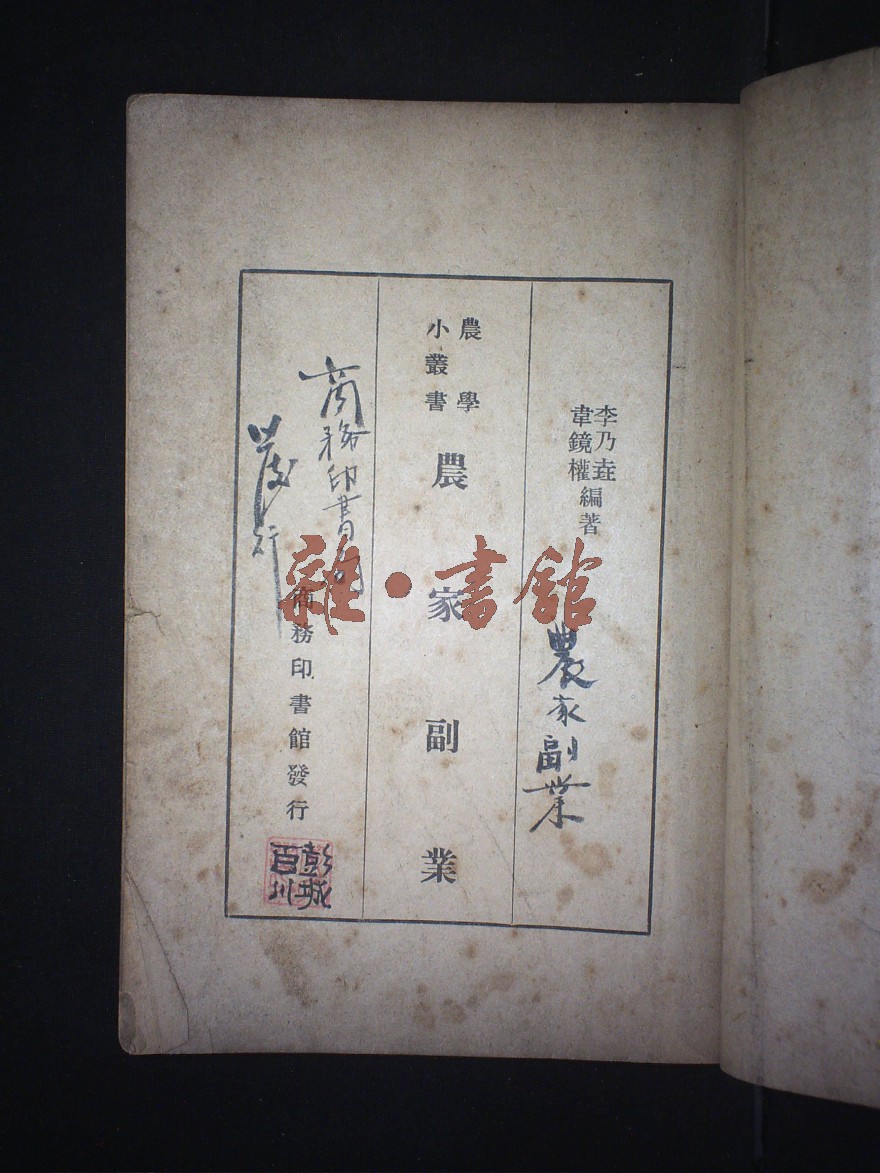 李乃垚
韋鏡權
編著
農家副業
農學
小叢書
農家副業
商務印書館
發行
商務印書館發行
彭城
百川
雜·書館